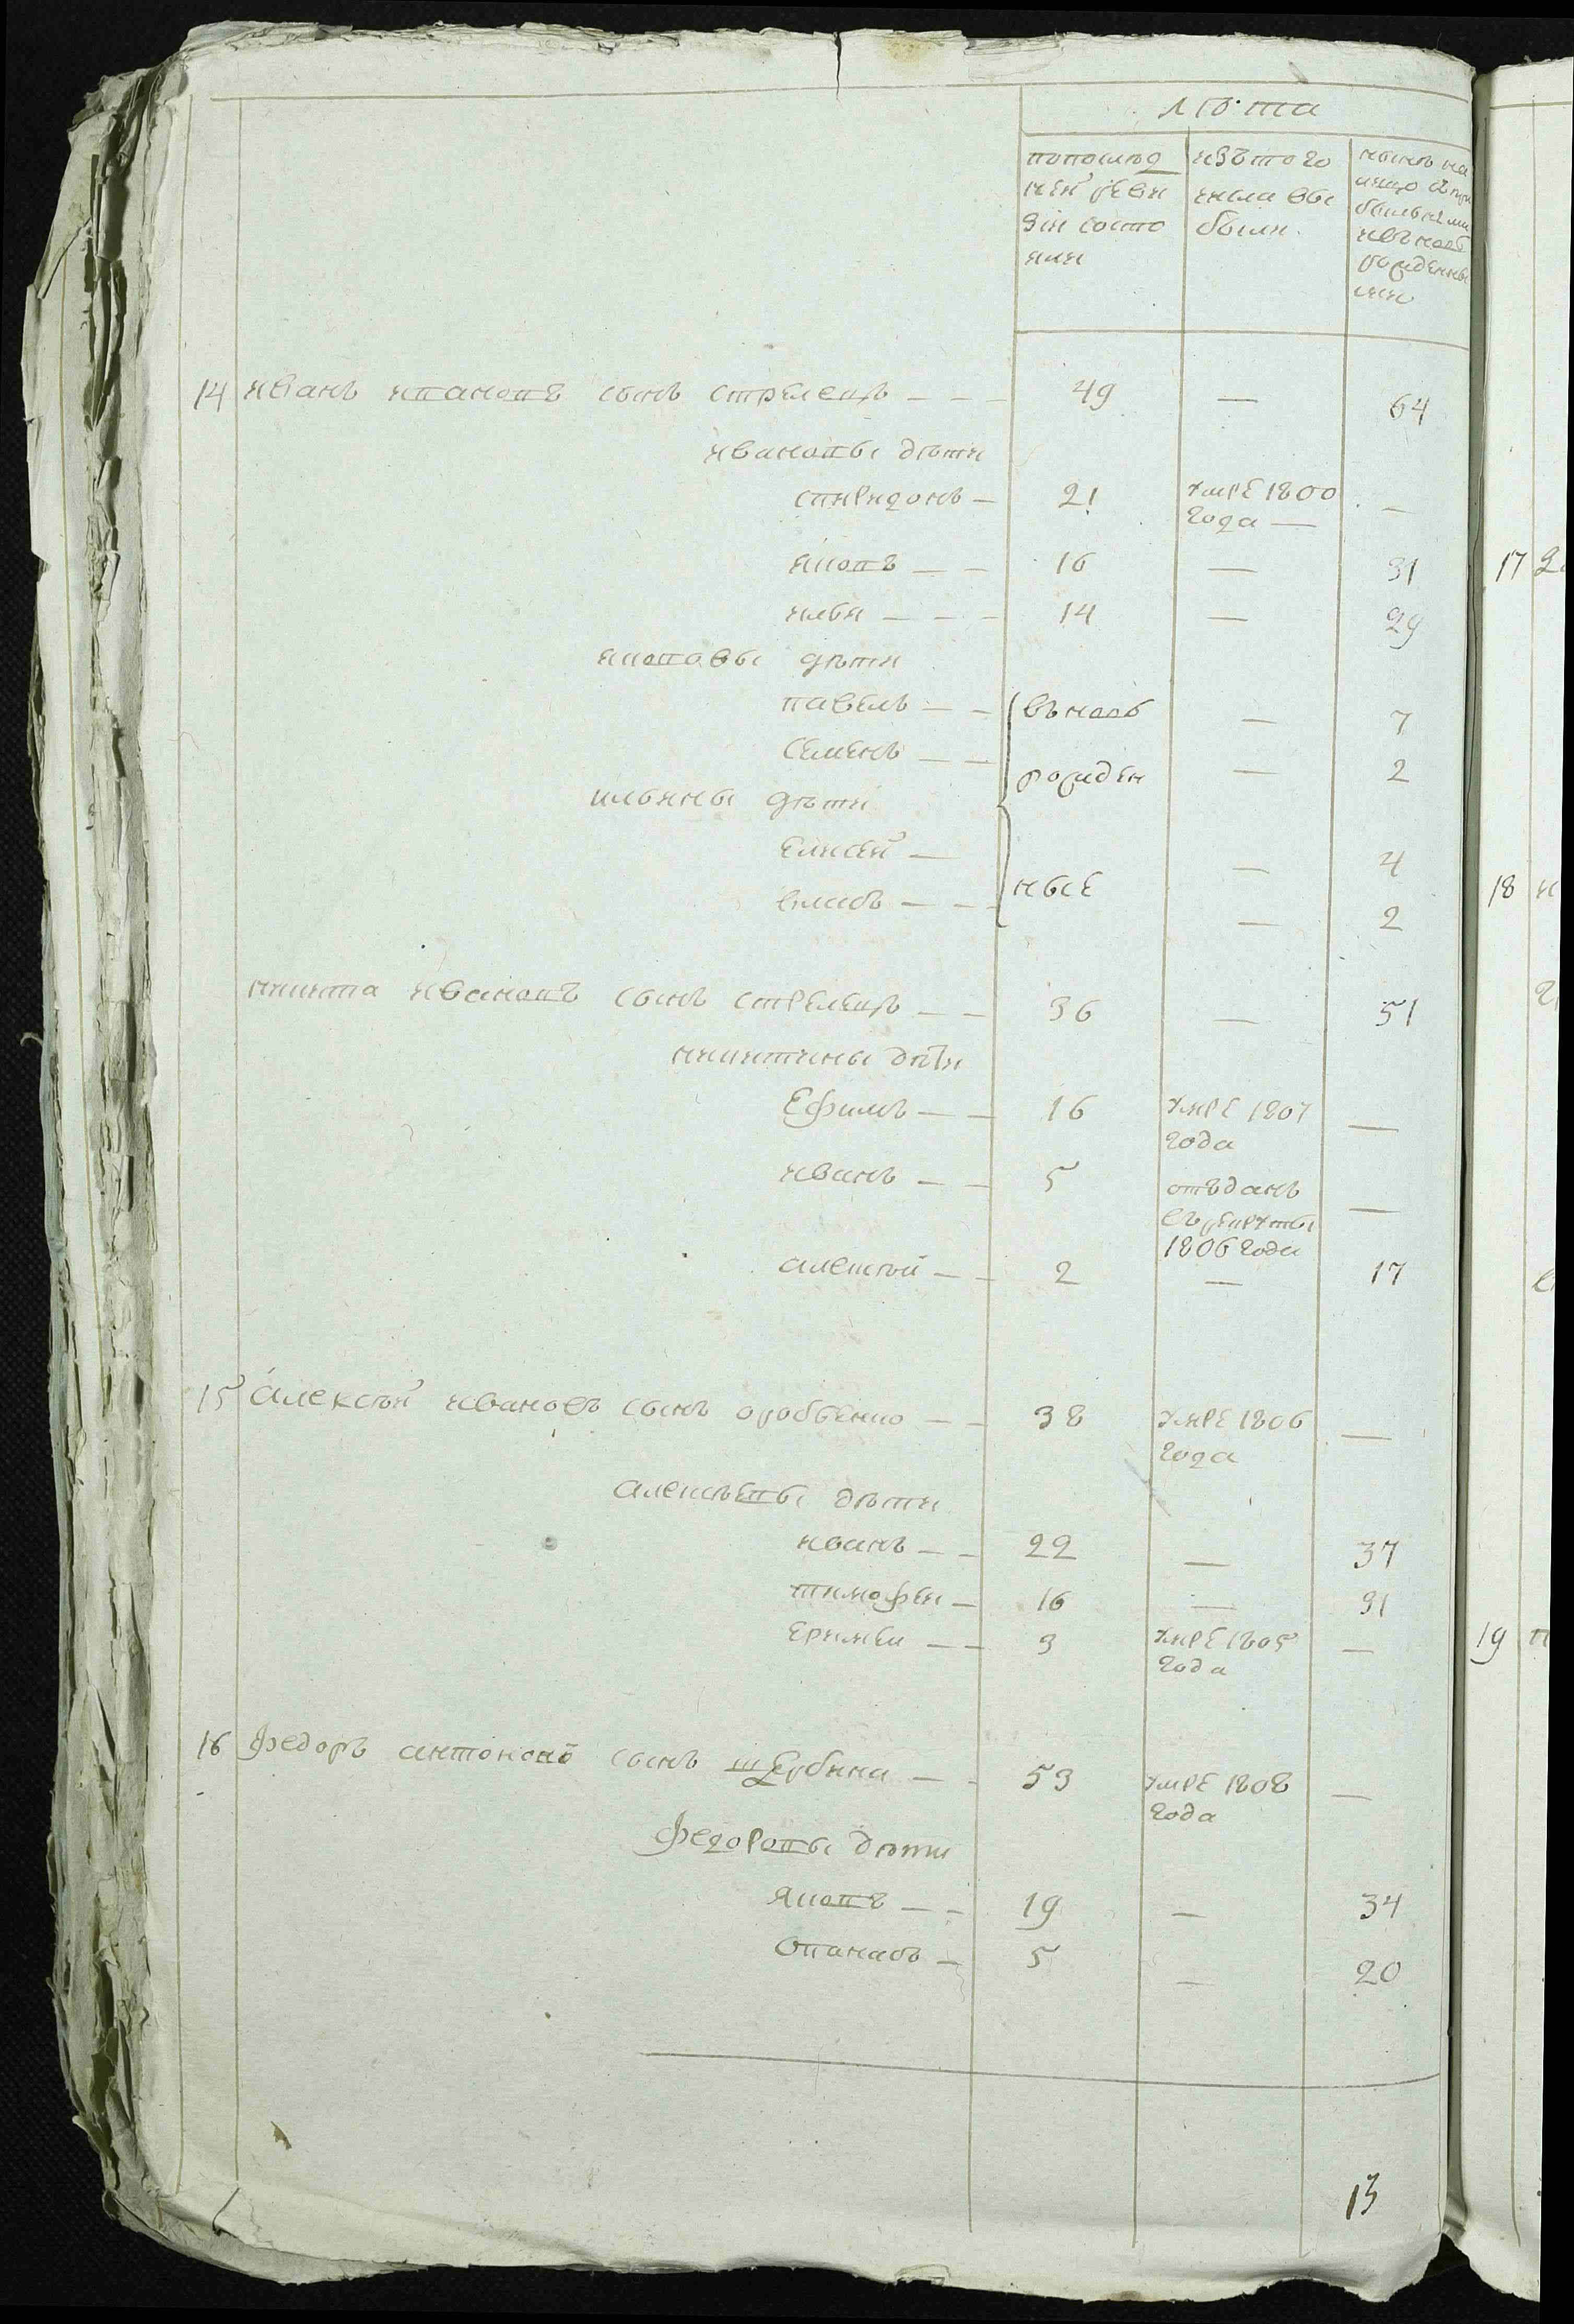 лѣта
попослѣд нѣй реви зіи состо яли
изътого числа вы были
нынѣ на лицо съпри былыми ивъновъ рожденны ми
14 иванъ ивановъ сынъ стрелецъ — — — 49 — 64
ивановы дѣти
спиридонъ — 21 умре 1800 года — —
яковъ — — 16 — 31
илья — — — 14 — 29
яковавы дѣти
павелъ — — въновь — 7
семенъ — — рожден — 2
ильины дѣти
елисей — — 4
власъ — — — ные — 2
никита ивановъ сынъ стрелецъ — — 36 — 51
никитины дѣти
Ефимъ — — 16 умре 1807 года —
иванъ — — 5 отъданъ въ рекруты 1806 года —
алексѣй — — 2 — 17
15 алексѣй ивановъ сынъ оробьенко — — 38 умре 1806 года —
алексѣевы дѣти
иванъ — — 22 — 37
тимофеи — 16 — 31
еримеи — — 3 умре 1805 года —
16 федоръ антоновъ сынъ щербина — — 53 умре 1808 года —
федоровы дѣти
яковъ — — 19 — 34
опанасъ — 5 — 20
13
17
18
19